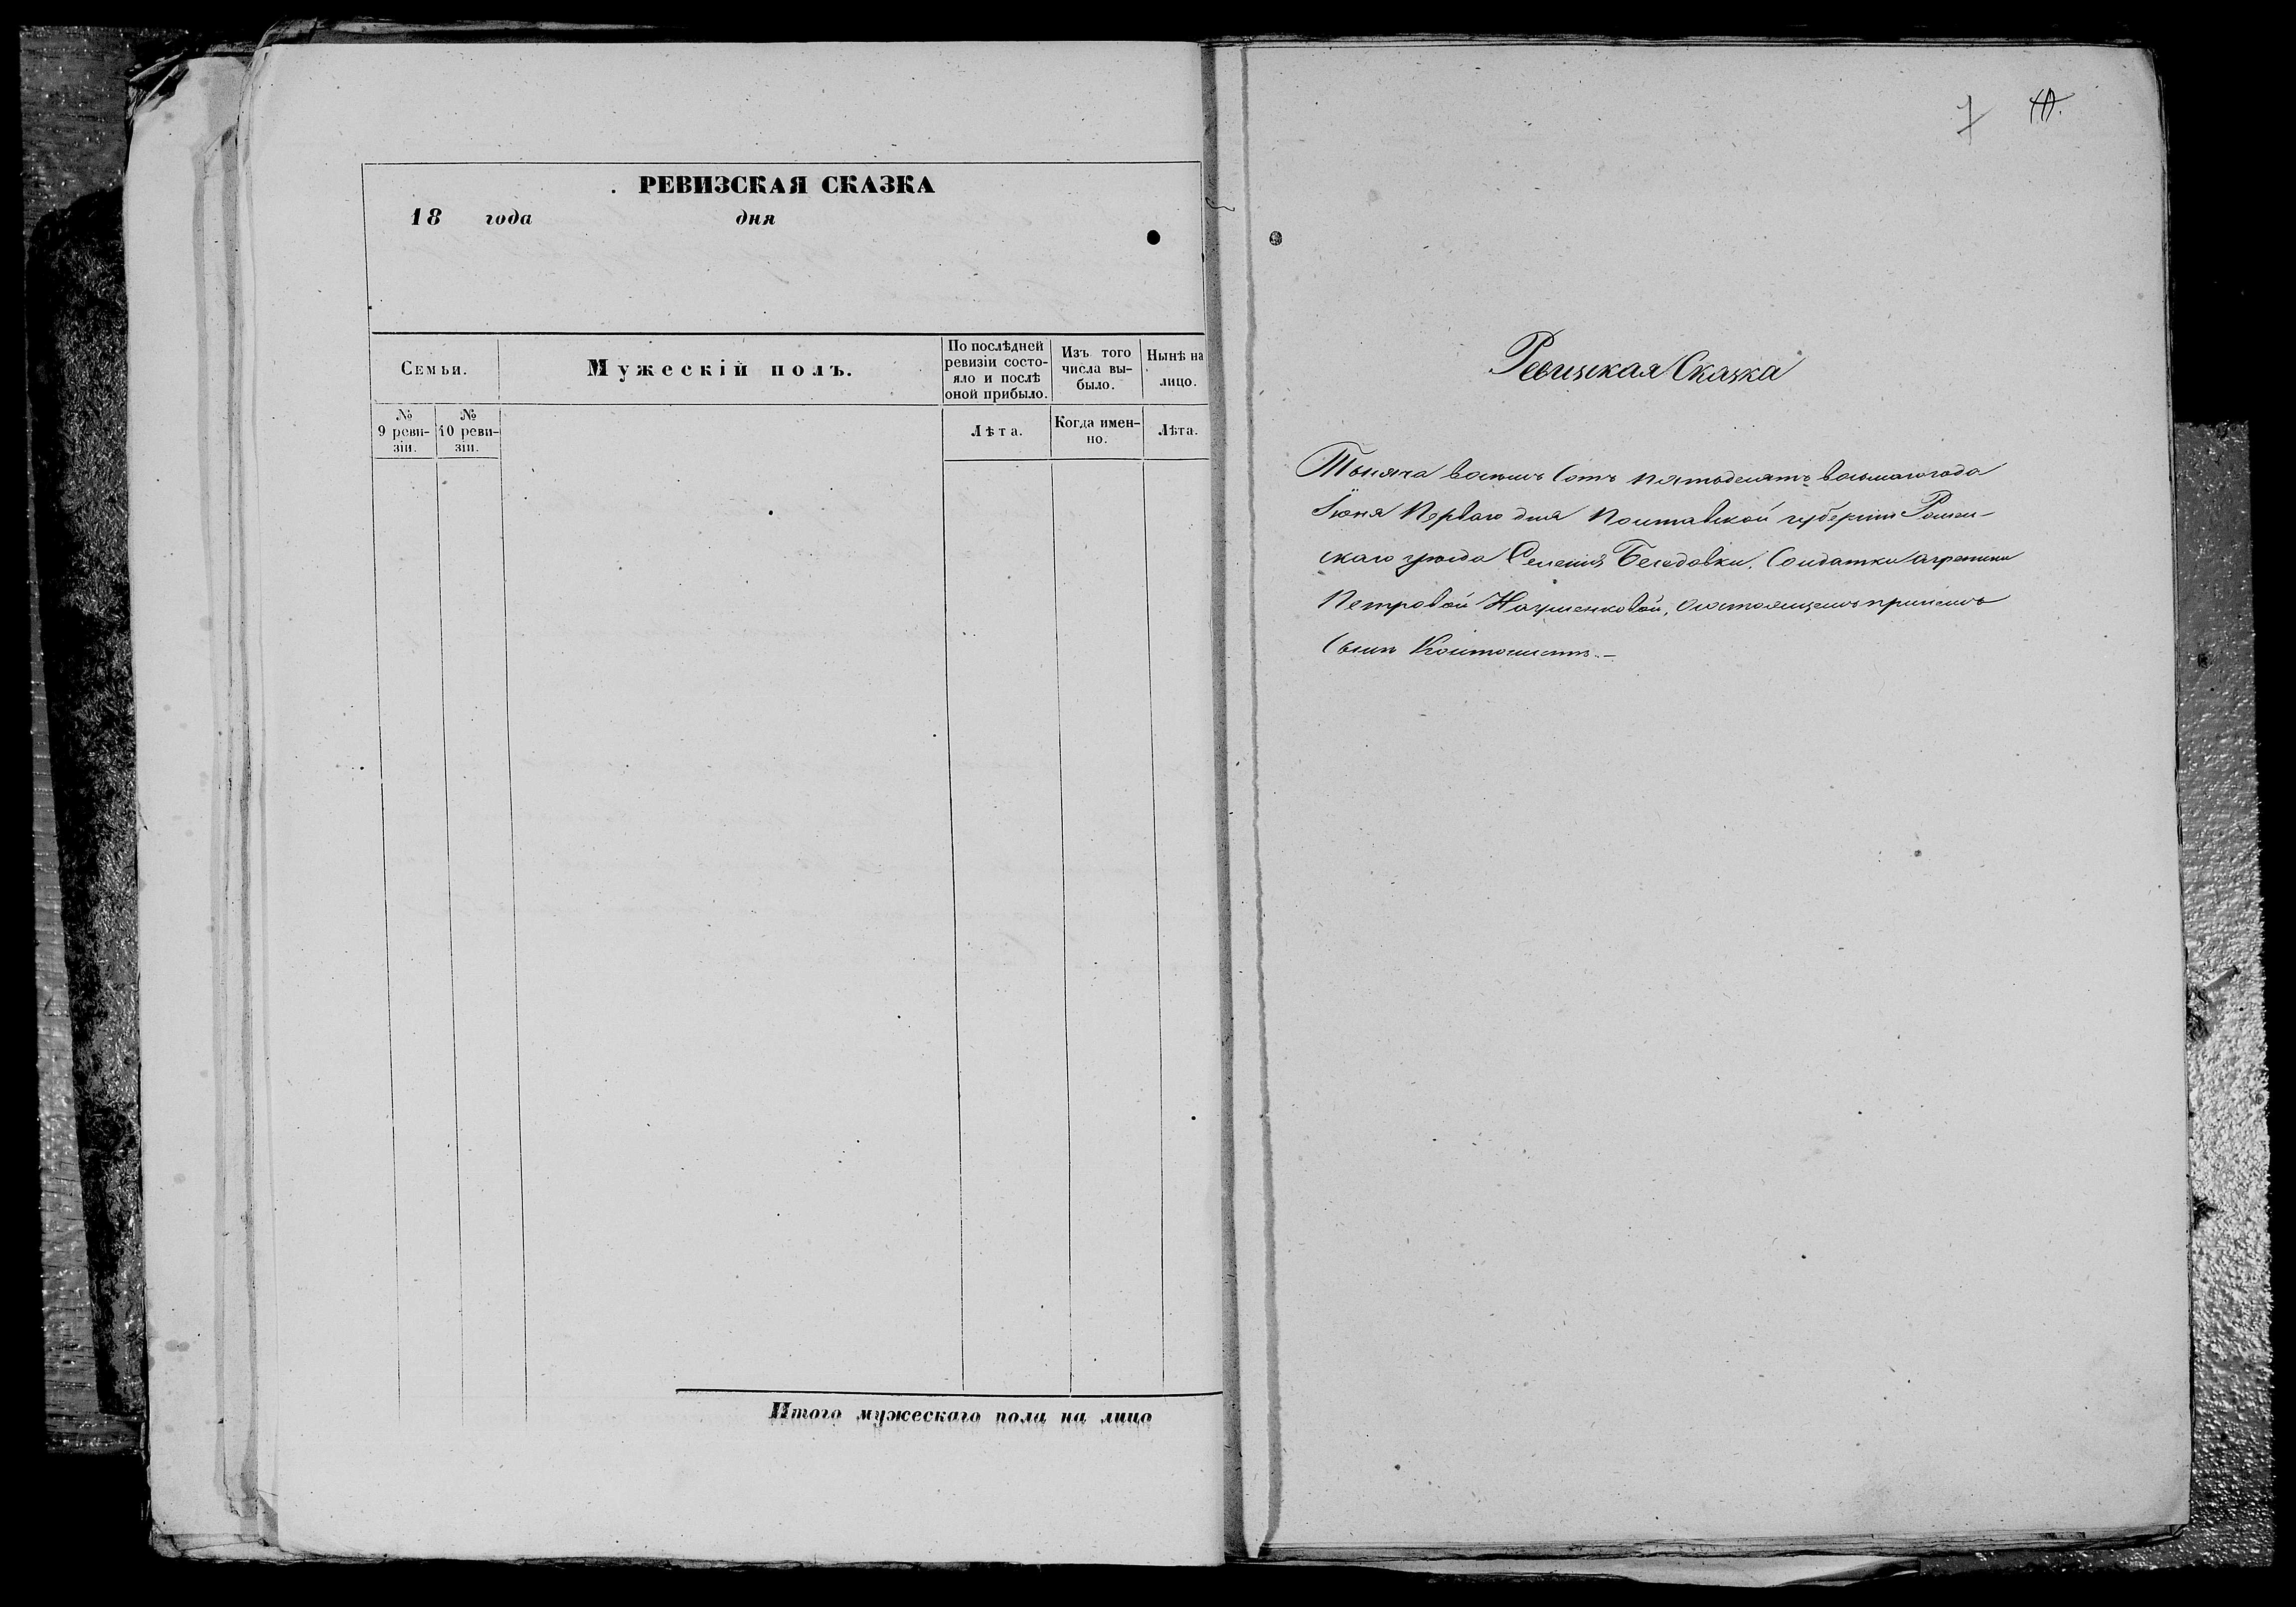 РЕВИЗСКАЯ СКАЗКА
18 года дня
Семьи.
Мужескій полъ.
По послѣдней ревизіи состо-
яло и послѣ оной прибыло.
Изъ того числа вы-
было.
Нынѣ на лицо.
№ 9 реви-
зіи.
№ 10 реви-
зіи.
Лѣта.
Когда имен-
но.
Лѣта.
Итого мужескаго пола на лицо
7
Ревизская Сказка
Тысяча восемь Сотъ пятьдесятъ восьмаго года
Іюня Перваго дня Полтавской губерніи Ромен-
скаго уѣзда Селенія Беседовки, Солдатки Агрепины
Петровой Науменковой, о состоящемъ при немъ
Сынѣ